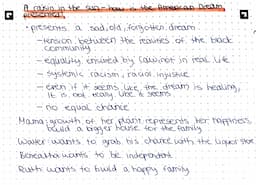 A raisin in the sun - how is the American Dream
presented?
• presents a sad, old, forgotten dream
- tension between the realities of the black
community
- equality ensured by law, not in real life
- systemic racism, racial injustice
- even if it seems like the dream is healing,
it is not really like it seems
- no equal chance
Mama: growth of her plant represents her happiness,
build a bigger house for the family
Walter: wants to grab his chance with the liquor store
Beneatha: wants to be independent
Ruth: wants to build a happy family